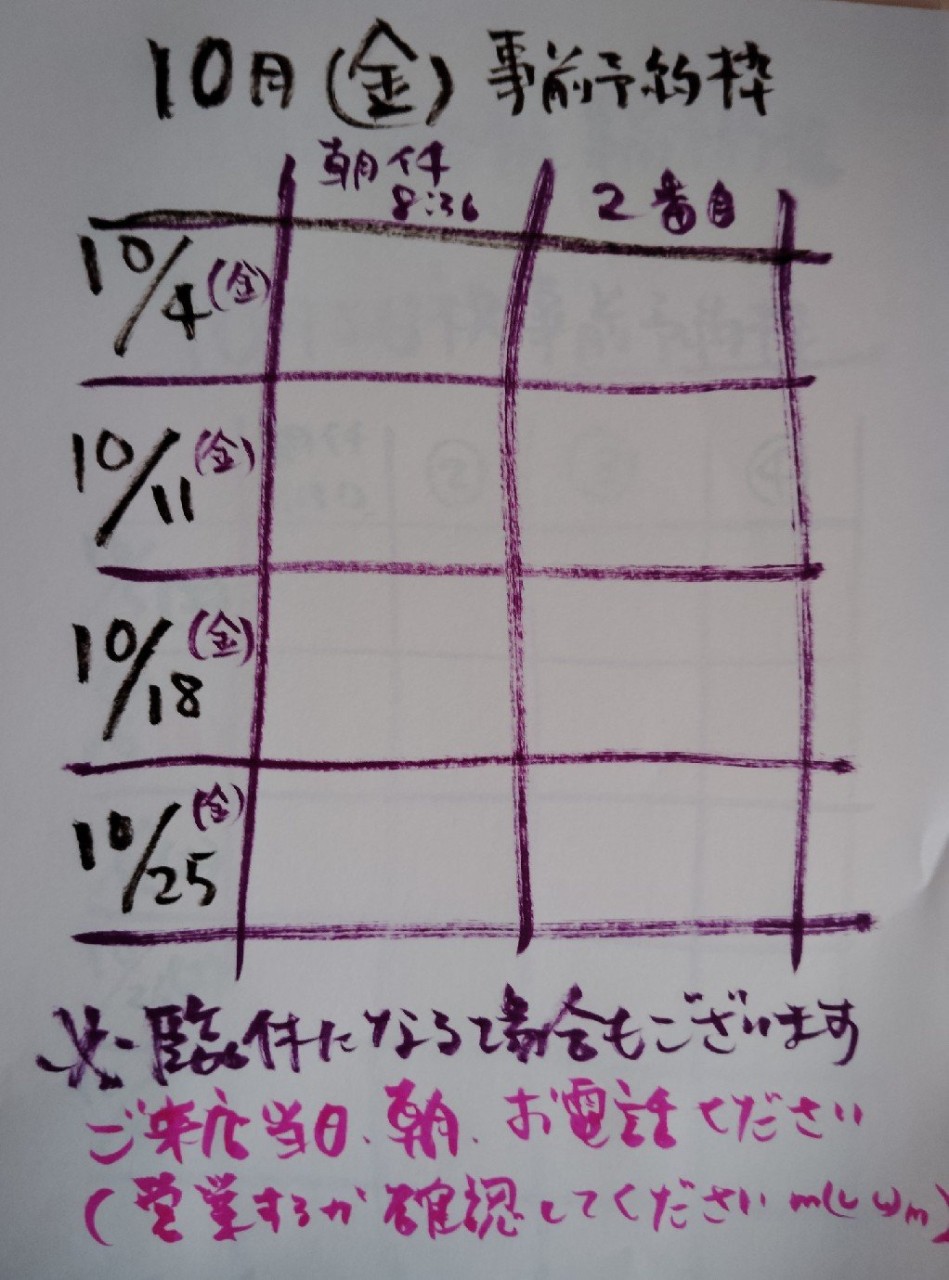 10月(金) 事前予約枠
朝イチ 2番目
8:30
10/4(金)
10/11(金)
10/18(金)
10/25(金)
※臨休になる場合もございます
ご来店当日、朝、お電話ください
(営業するか確認してくださいm(_ _)m)